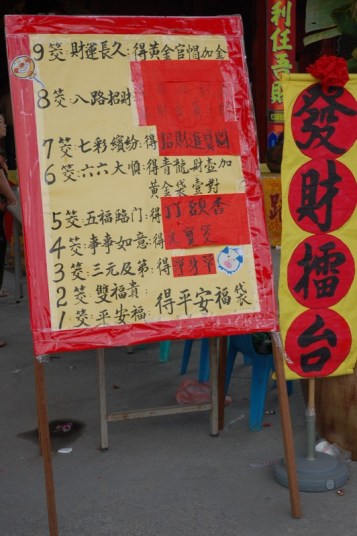 9筊:財運長久:得黃金官帽加金
8筊:八路招財
7筊:七彩繽紛:得招財進寶
6筊:六六大順:得青龍財壹加
黃金袋壹對
5筊:五福臨門:得打殿香
4筊:事事如意:得元寶筊
3筊:三元及第:得
2筊:雙福貴:
1筊:平安福:
得平安福袋
發財擂台
利任吾財